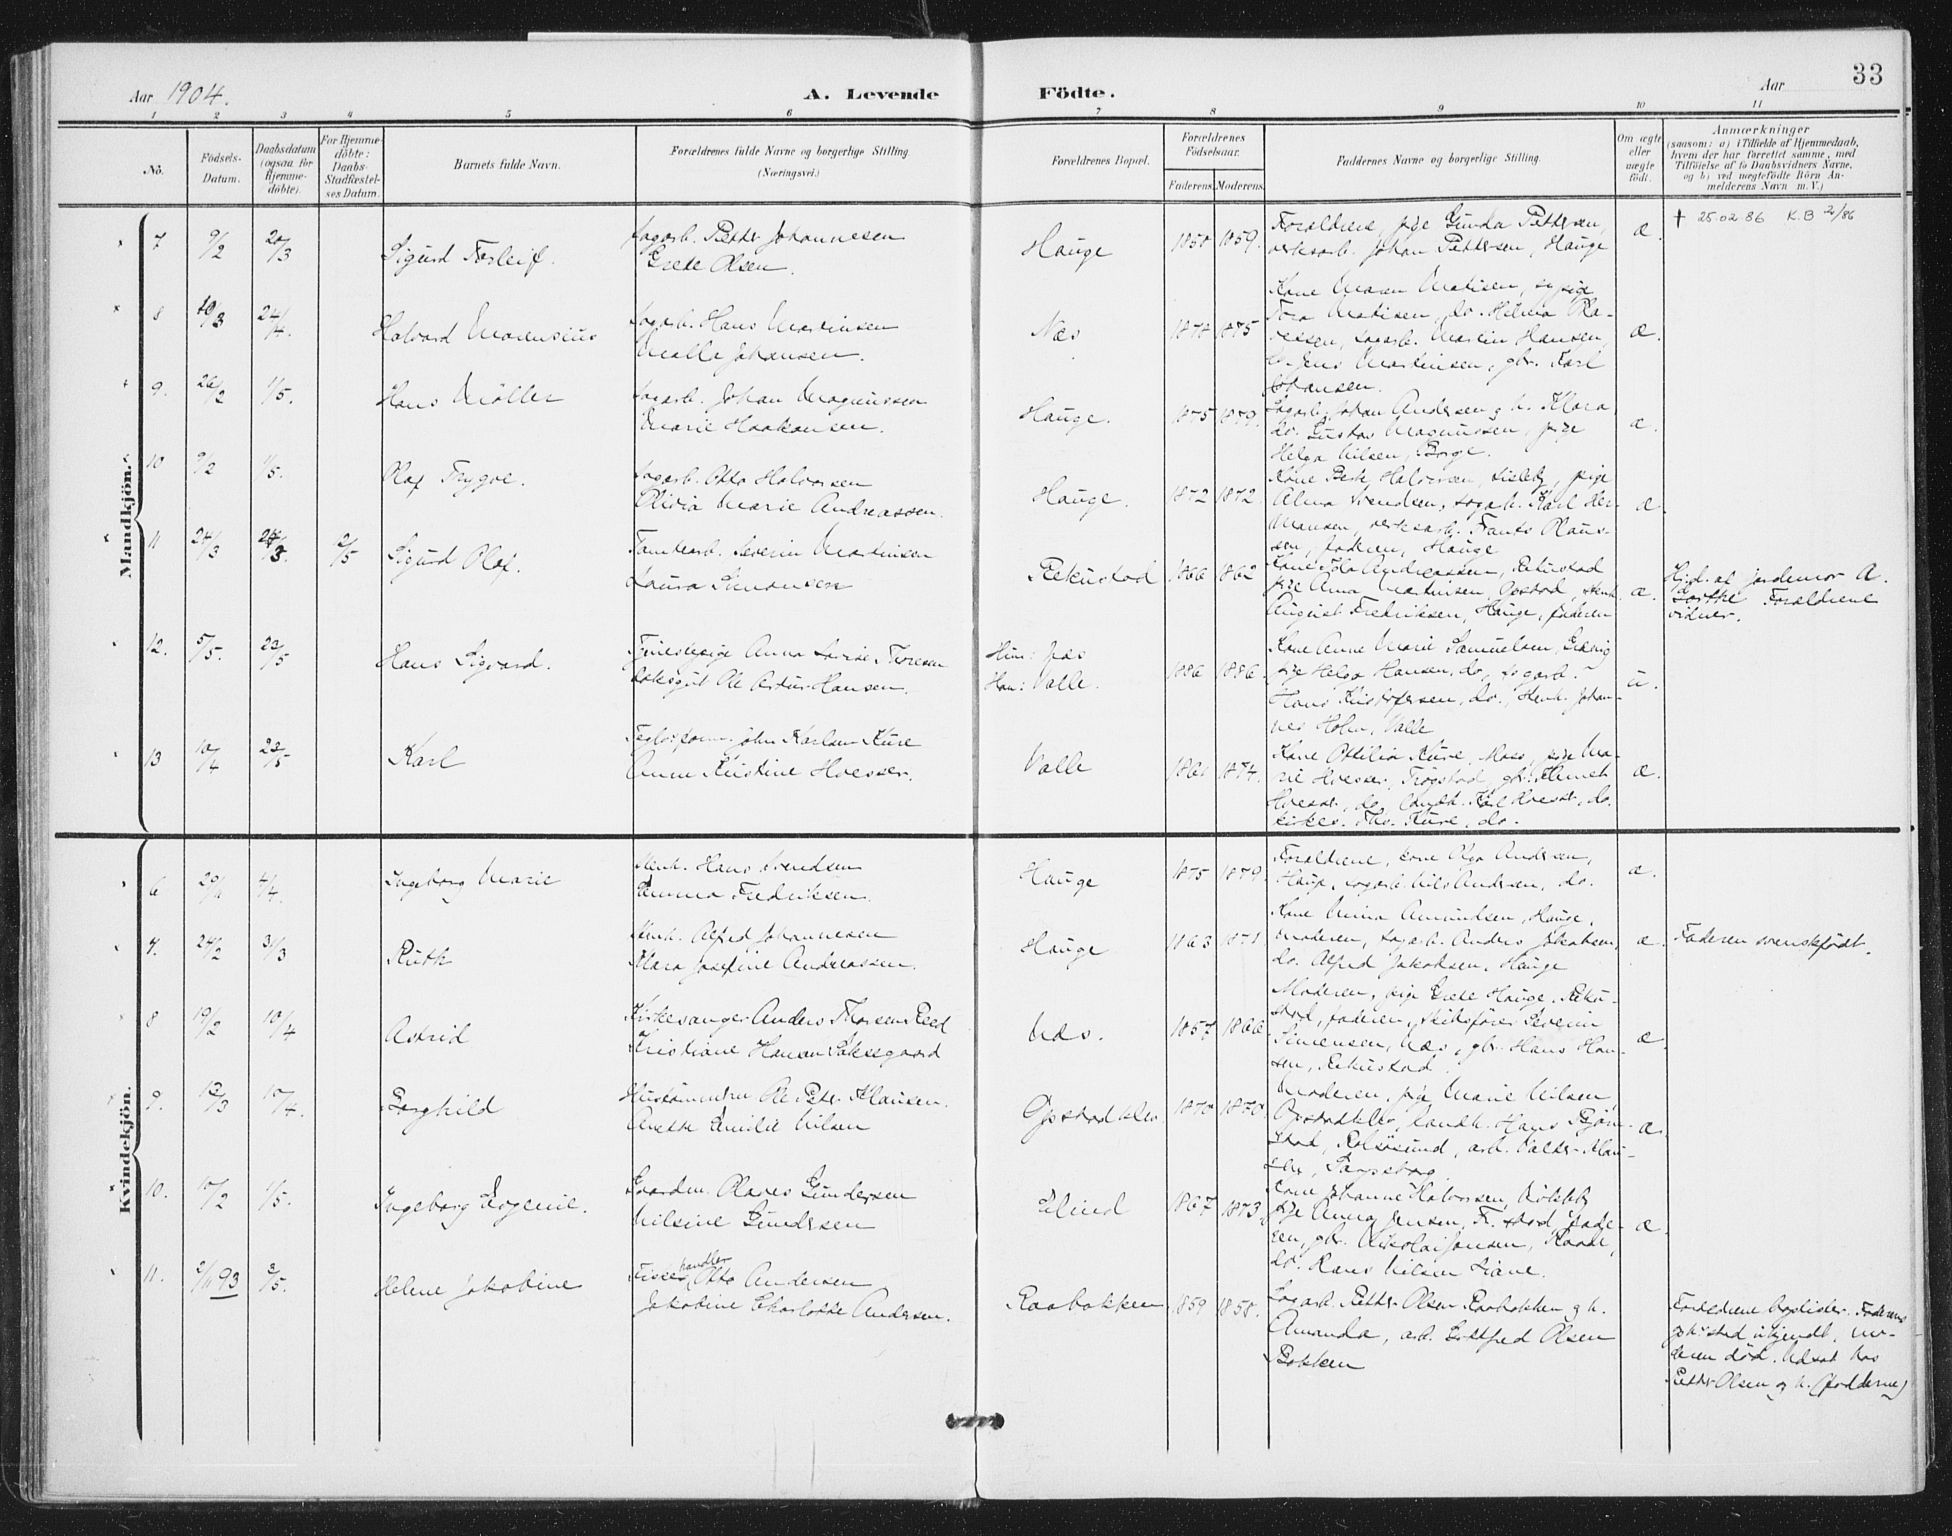 Aar 1904.
A. Levende Födte.
Aar
33
1 2 3 4 5 6 7 8 9 10 11
No.
Födsels-
Datum.
Daabsdatum
(ogsaa for
Hjemme-
döbte).
For Hjemme-
döbte:
Daabs-
Stadfæstel-
ses Datum.
Barnets fulde Navn.
Forældrenes fulde Navne og borgerlige Stilling.
(Næringsvei.)
Forældrenes Bopæl.
Forældrenes
Födselsaar.
Faderens. Moderens.
Faddernes Navne og borgerlige Stilling.
Om ægte
eller
uægte
födt.
Anmærkninger
(saasom: a) i Tilfælde af Hjemmedaab,
hvem der har forrettet samme, med
Tilföielse af to Daabsvidners Navne,
og b) ved uægtefödte Börn An-
melderens Navn m. V.)
Mandkjön.
7 9/2 20/3 Sigurd Torleif. Sagarb. Petter Johannesen
Grete Olsen.
Hauge 1858 1859.
Forældrene, pige Gunda Pettersen,
verksarb. Johan Pettersen, Hauge
æ.
† 25.02.86 K.B 2/86
8 10/3 24/4. Halvard Marensius Sagarb. Hans Martinsen
Malla Johansen.
Næs 1875
Kone Maren Matisen, pige
Tora Matisen, do. Helma
Sagarb. Martin Hansen,
Jens Martinsen, gbr. Karl
Johansen.
æ.
9. 26/2 1/5. Hans Möller Sagarb. Johan Magnussen
Marie Haakensen.
Hauge. 1875 1879.
Sagarb. Johan Andersen g h. Klara,
do. Gustav Magnussen, pige
Helga Nilsen, Borge.
æ.
10 9/2 1/5. Olaf Trygve. Sagarb. Otto Halvorsen
Olivia Marie Andreassen.
Hauge. 1872 1872.
Kone Halvorsen, Lisleby, pige
Alma Svendsen, sagarb. Karl Her-
mansen, verksarb. Frants Claus-
sen, faderen, Hauge
æ.
11 24/3 2/5 Sigurd Olaf. Tomtearb. Severin Martinsen
Laura Simonsen
Rekustad 1866 1862
Kone Ida Andreassen, Rekustad
pige Anna Martinsen, Opstad, stenh.
August Fredriksen, Hauge, faderen
æ.
Hjd. af jordemor A.
Forældrene
vidner.
12. 5/5. 23/5 Hans Sigvard. Tjenestepige Anna Lovise Thoresen
Ole Artur Hansen.
Hun: Næs
Han: Valle. 1886 1886.
Kone Anne Marie Samuelsen,
pige Helga Hansen, do, sagarb.
Hans Kristofersen, do., stenh. Johan-
nes Holm, Valle
u.
13 10/4 23/5 Karl John Karlsen Kure
Anne Kristine Hvesser.
Valle 1874.
Kone Ottilia Kure, Moss, pige Ma-
rie Hvesser, Trögstad, gbr.
do, landh. Karl do.
kirkes. Ths. Kure, do.
æ.
Kvindekjön.
6 29/1 4/4. Ingeborg Marie Stenh. Hans Svendsen
Emma Fredriksen.
Hauge 1875 1879.
Forældrene, kone Olga Andersen,
Hauge, sagarb. Nils Andersen, do.
æ.
7. 24/2 31/3 Ruth Stenh. Alfred Johannesen
Klara Josefine Andreassen.
Hauge 1863 1871.
Kone Mina Amundsen, Hauge,
Moderen, sagarb. Anders Jakobsen,
do. Alfred Jakobsen, Hauge
æ.
Faderen svenskfödt.
8 19/2 10/4 Astrid Kirkesanger Anders Thorsens Reed
Kristiane Hansen Laksgaard
Næs. 1857 1866
Moderen, pige Grete Hauge, Reku-
stad, faderen, skibsförer Severin
Simensen, Næs, gbr. Hans Han-
sen, Rekustad.
æ.
9. 13/3 10/4. Borghild Hustömmerm. Ole Peter Klausen.
Anette Emilie Nilsen
Opstadkley 1870 1870.
Moderen, pige Marie Nilsen
Opstadklev, landh. Hans Björn-
stad, Rolsösund, arb. Valter Klau-
sen, Sarpsborg.
æ.
10. 10/2 1/5. Ingeborg Eogenie. Gaardm. Olaves Gundersen
Nilsine Gundersen
Elind 1867 1873
Kone Johanne Halvorsen, Nökleby
pige Anna Jensen, Fr. stad, fade-
ren, gbr. Nikolai Jonsen, Raade,
do. Hans Nilsen Liane.
æ.
11. 2/11 93 3/5. Helene Jakobine Fiskehandler Otto Andersen
Jakobine Charlotte Andersen.
Raabakken 1859 1858.
Sagarb. Petter Olsen Raabakken g h.
Amanda, arb. Gottfred Olsen
Bakken
Forældrene baptister. Faderens
opholdssted ukjendt, mo-
deren död. Udsat hos
Petter Olsen og h. (fadderne)